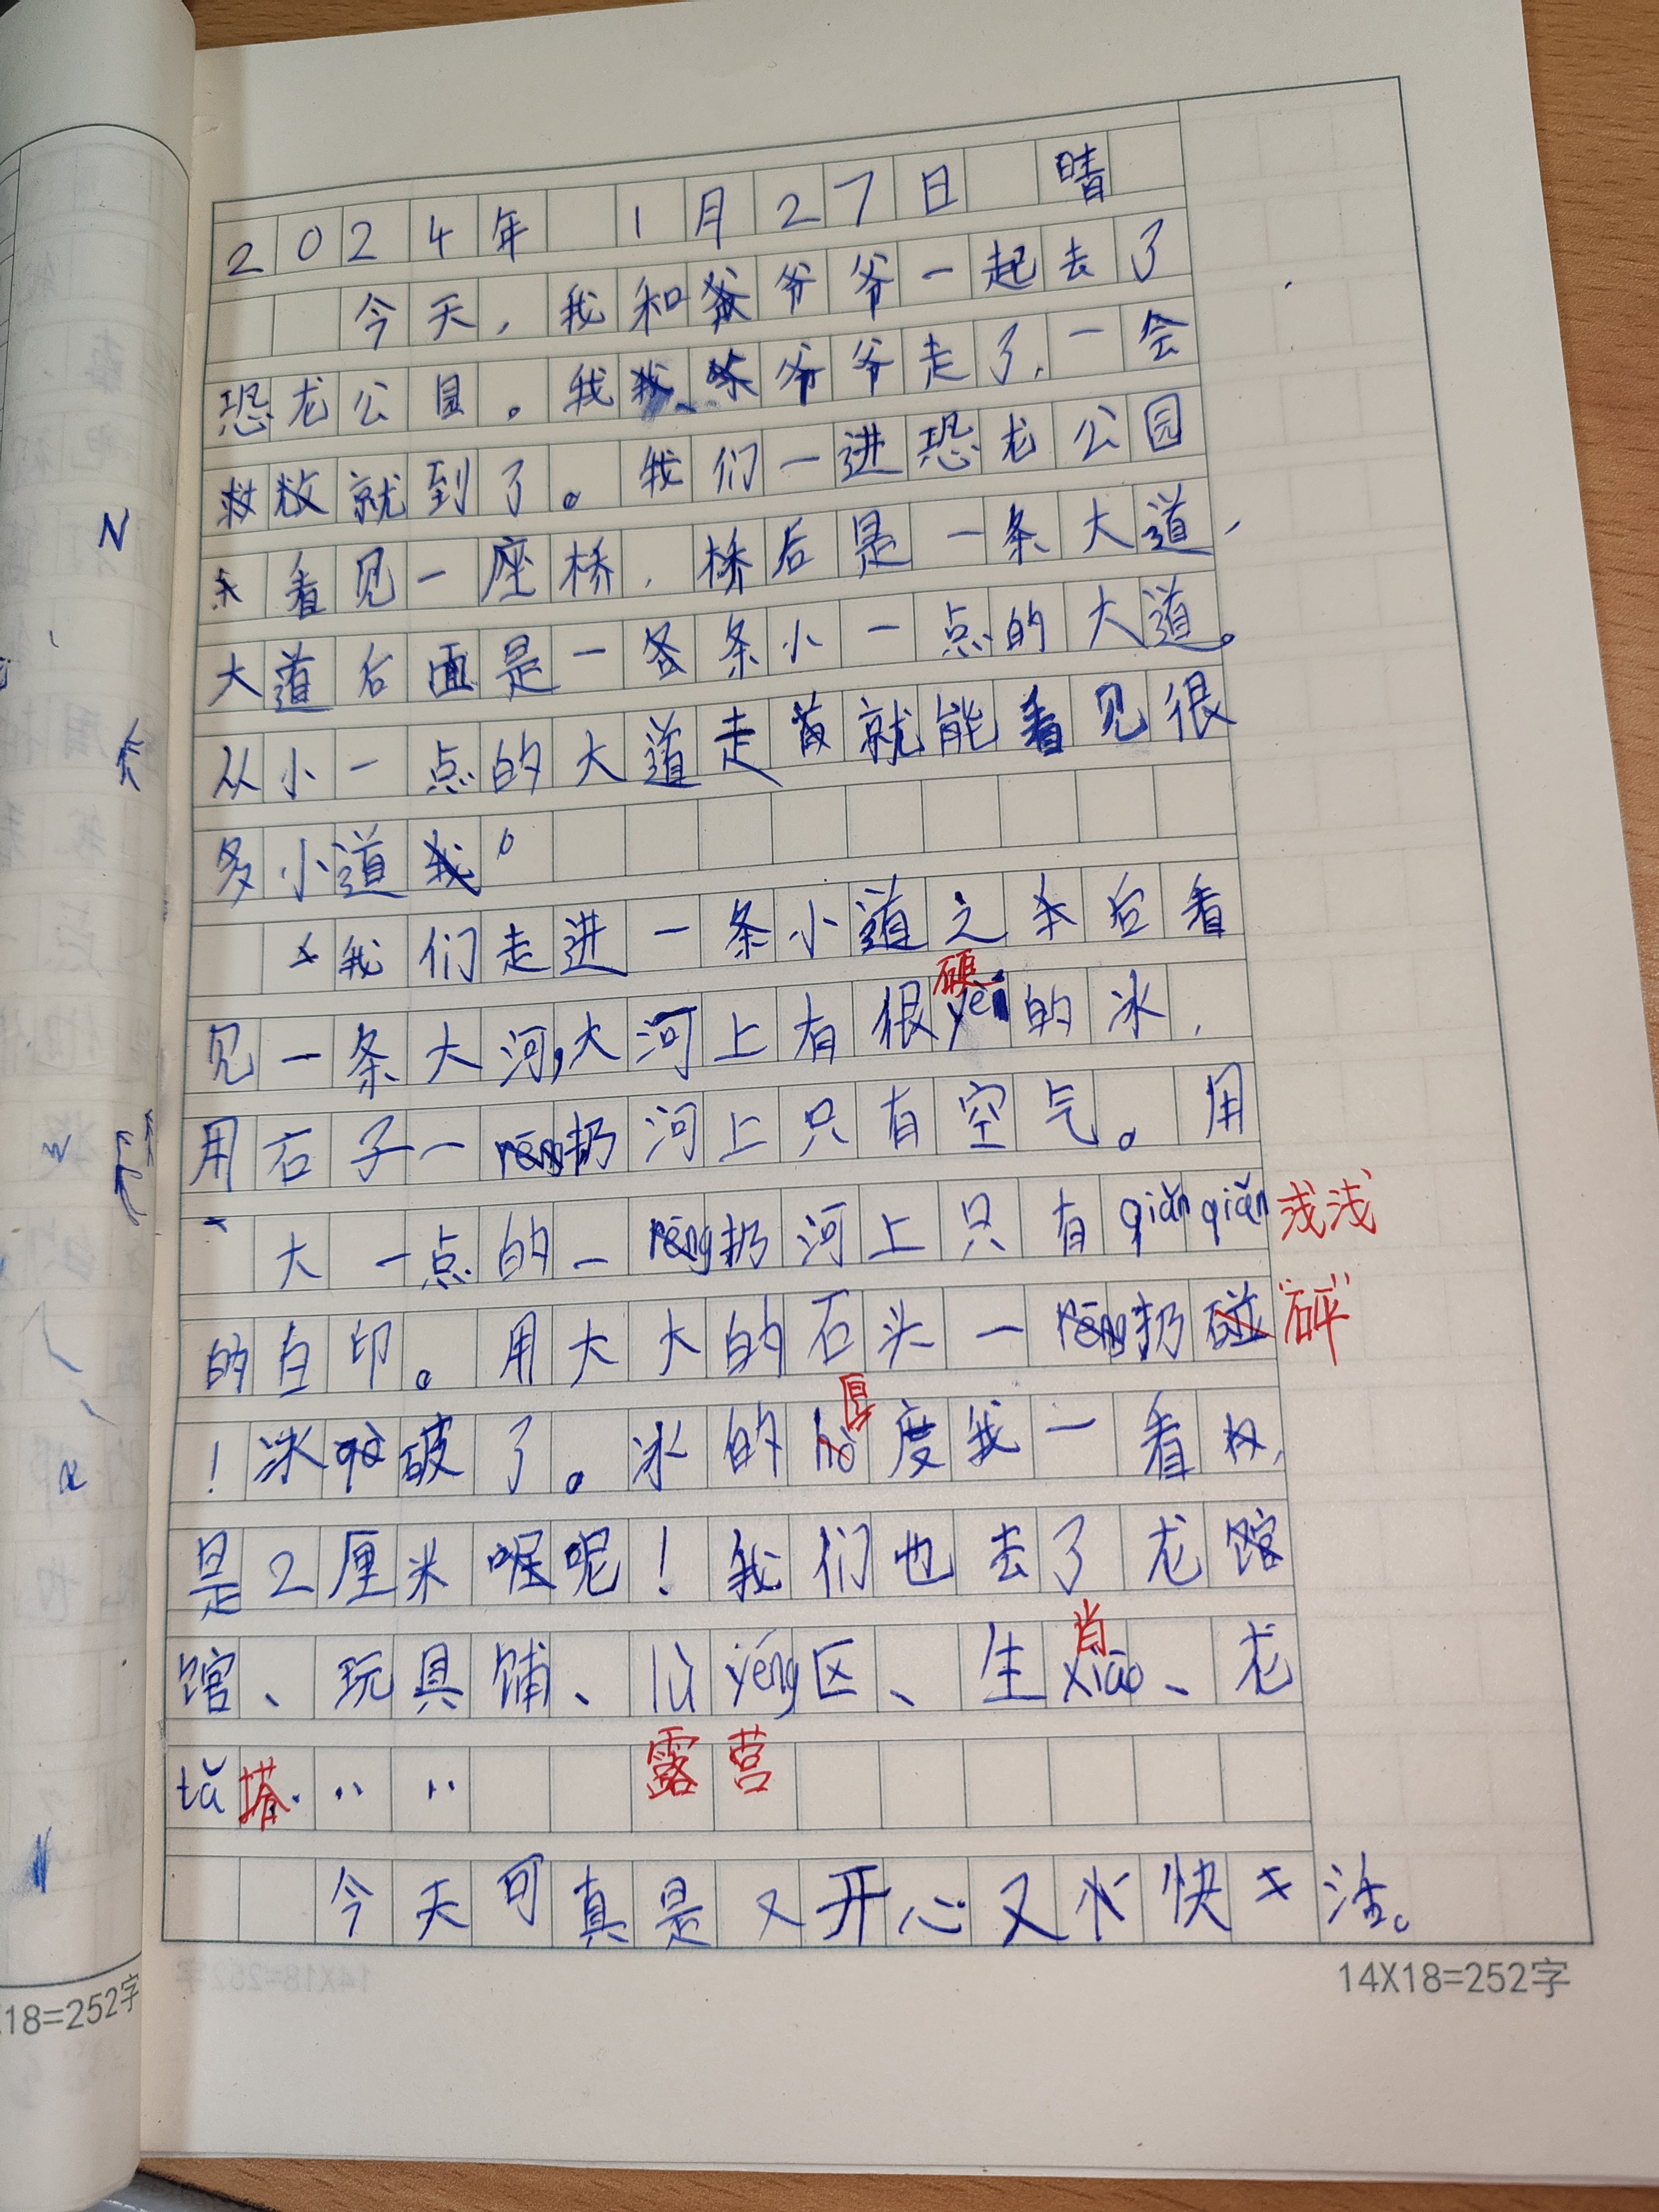 2024年 1月27日 晴
今天，我和爷爷一起去了
恐龙公园。我爷爷走了，一会
就到了。我们一进恐龙公园
看见一座桥，桥后是一条大道，
大道后面是一条小一点的大道。
从小一点的大道走就能看见很
多小道。
我们走进一条小道之后看
硬
见一条大河,大河上有很的冰，
用石子一扔河上只有空气。用
大一点的一扔河上只有qiǎnqiǎn 浅浅
的白印。用大大的石头一扔 "砰"
厚
！冰破了。冰的hò度我一看，
是2厘米呢！我们也去了龙馆
肖
馆、玩具铺、lù yéng区、生xiāo、龙
tǎ 塔…… 露营
今天可真是又开心又快活。
14X18=252字
18=252字